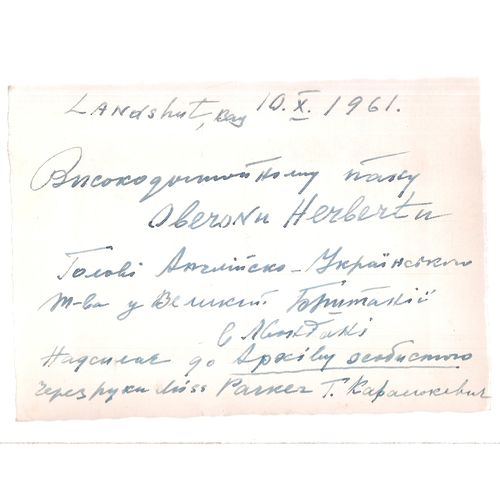 Landshut, Day 10.X.1961.
Високодостойному пану
Oberonu Herbertu
Голові Англійско-Українського
т-ва у Великій Британії
в Лондоні
Надсилає до Архіву особистого
через руки Miss Parker Г. Карамокевич